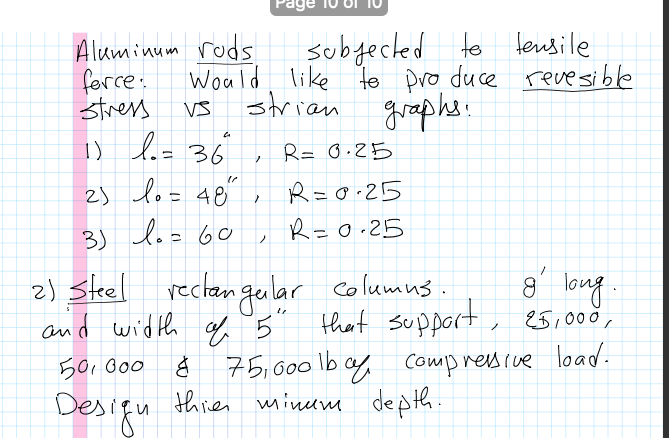 Page 10 of 10
Aluminum rods subjected to tensile
force. Would like to produce revesible
stress vs strian graphs:
1) l₀ = 36", R = 0.25
2) l₀ = 48", R = 0.25
3) l₀ = 60, R = 0.25
2) Steel rectangular columns. 8' long.
and width of 5" that support, 25,000,
50,000 & 75,000 lb of compressive load.
Design thier minum depth.